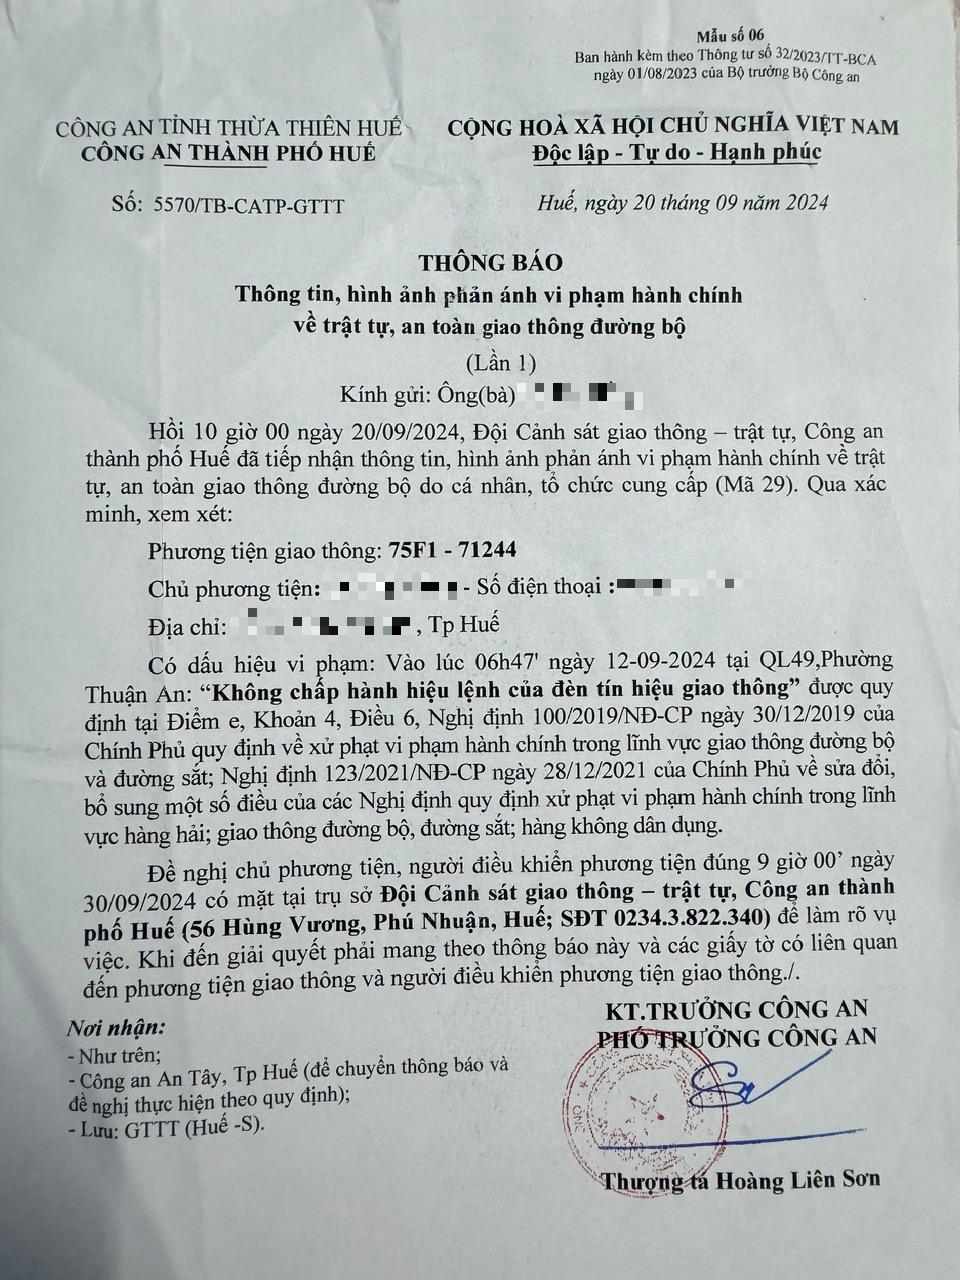 Mẫu số 06
Ban hành kèm theo Thông tư số 32/2023/TT-BCA
ngày 01/08/2023 của Bộ trưởng Bộ Công an
CÔNG AN TỈNH THỪA THIÊN HUẾ
CÔNG AN THÀNH PHỐ HUẾ
CỘNG HOÀ XÃ HỘI CHỦ NGHĨA VIỆT NAM
Độc lập - Tự do - Hạnh phúc
Số: 5570/TB-CATP-GTTT
Huế, ngày 20 tháng 09 năm 2024
THÔNG BÁO
Thông tin, hình ảnh phản ánh vi phạm hành chính
về trật tự, an toàn giao thông đường bộ
(Lần 1)
Kính gửi: Ông(bà)
Hồi 10 giờ 00 ngày 20/09/2024, Đội Cảnh sát giao thông – trật tự, Công an
thành phố Huế đã tiếp nhận thông tin, hình ảnh phản ánh vi phạm hành chính về trật
tự, an toàn giao thông đường bộ do cá nhân, tổ chức cung cấp (Mã 29). Qua xác
minh, xem xét:
Phương tiện giao thông: 75F1 - 71244
Chủ phương tiện: - Số điện thoại :
Địa chỉ: , Tp Huế
Có dấu hiệu vi phạm: Vào lúc 06h47' ngày 12-09-2024 tại QL49,Phường
Thuận An: “Không chấp hành hiệu lệnh của đèn tín hiệu giao thông” được quy
định tại Điểm e, Khoản 4, Điều 6, Nghị định 100/2019/NĐ-CP ngày 30/12/2019 của
Chính Phủ quy định về xử phạt vi phạm hành chính trong lĩnh vực giao thông đường bộ
và đường sắt; Nghị định 123/2021/NĐ-CP ngày 28/12/2021 của Chính Phủ về sửa đổi,
bổ sung một số điều của các Nghị định quy định xử phạt vi phạm hành chính trong lĩnh
vực hàng hải; giao thông đường bộ, đường sắt; hàng không dân dụng.
Đề nghị chủ phương tiện, người điều khiển phương tiện đúng 9 giờ 00’ ngày
30/09/2024 có mặt tại trụ sở Đội Cảnh sát giao thông – trật tự, Công an thành
phố Huế (56 Hùng Vương, Phú Nhuận, Huế; SĐT 0234.3.822.340) để làm rõ vụ
việc. Khi đến giải quyết phải mang theo thông báo này và các giấy tờ có liên quan
đến phương tiện giao thông và người điều khiển phương tiện giao thông./.
Nơi nhận:
- Như trên;
- Công an An Tây, Tp Huế (để chuyển thông báo và
đề nghị thực hiện theo quy định);
- Lưu: GTTT (Huế -S).
KT.TRƯỞNG CÔNG AN
PHÓ TRƯỞNG CÔNG AN
Thượng tá Hoàng Liên Sơn